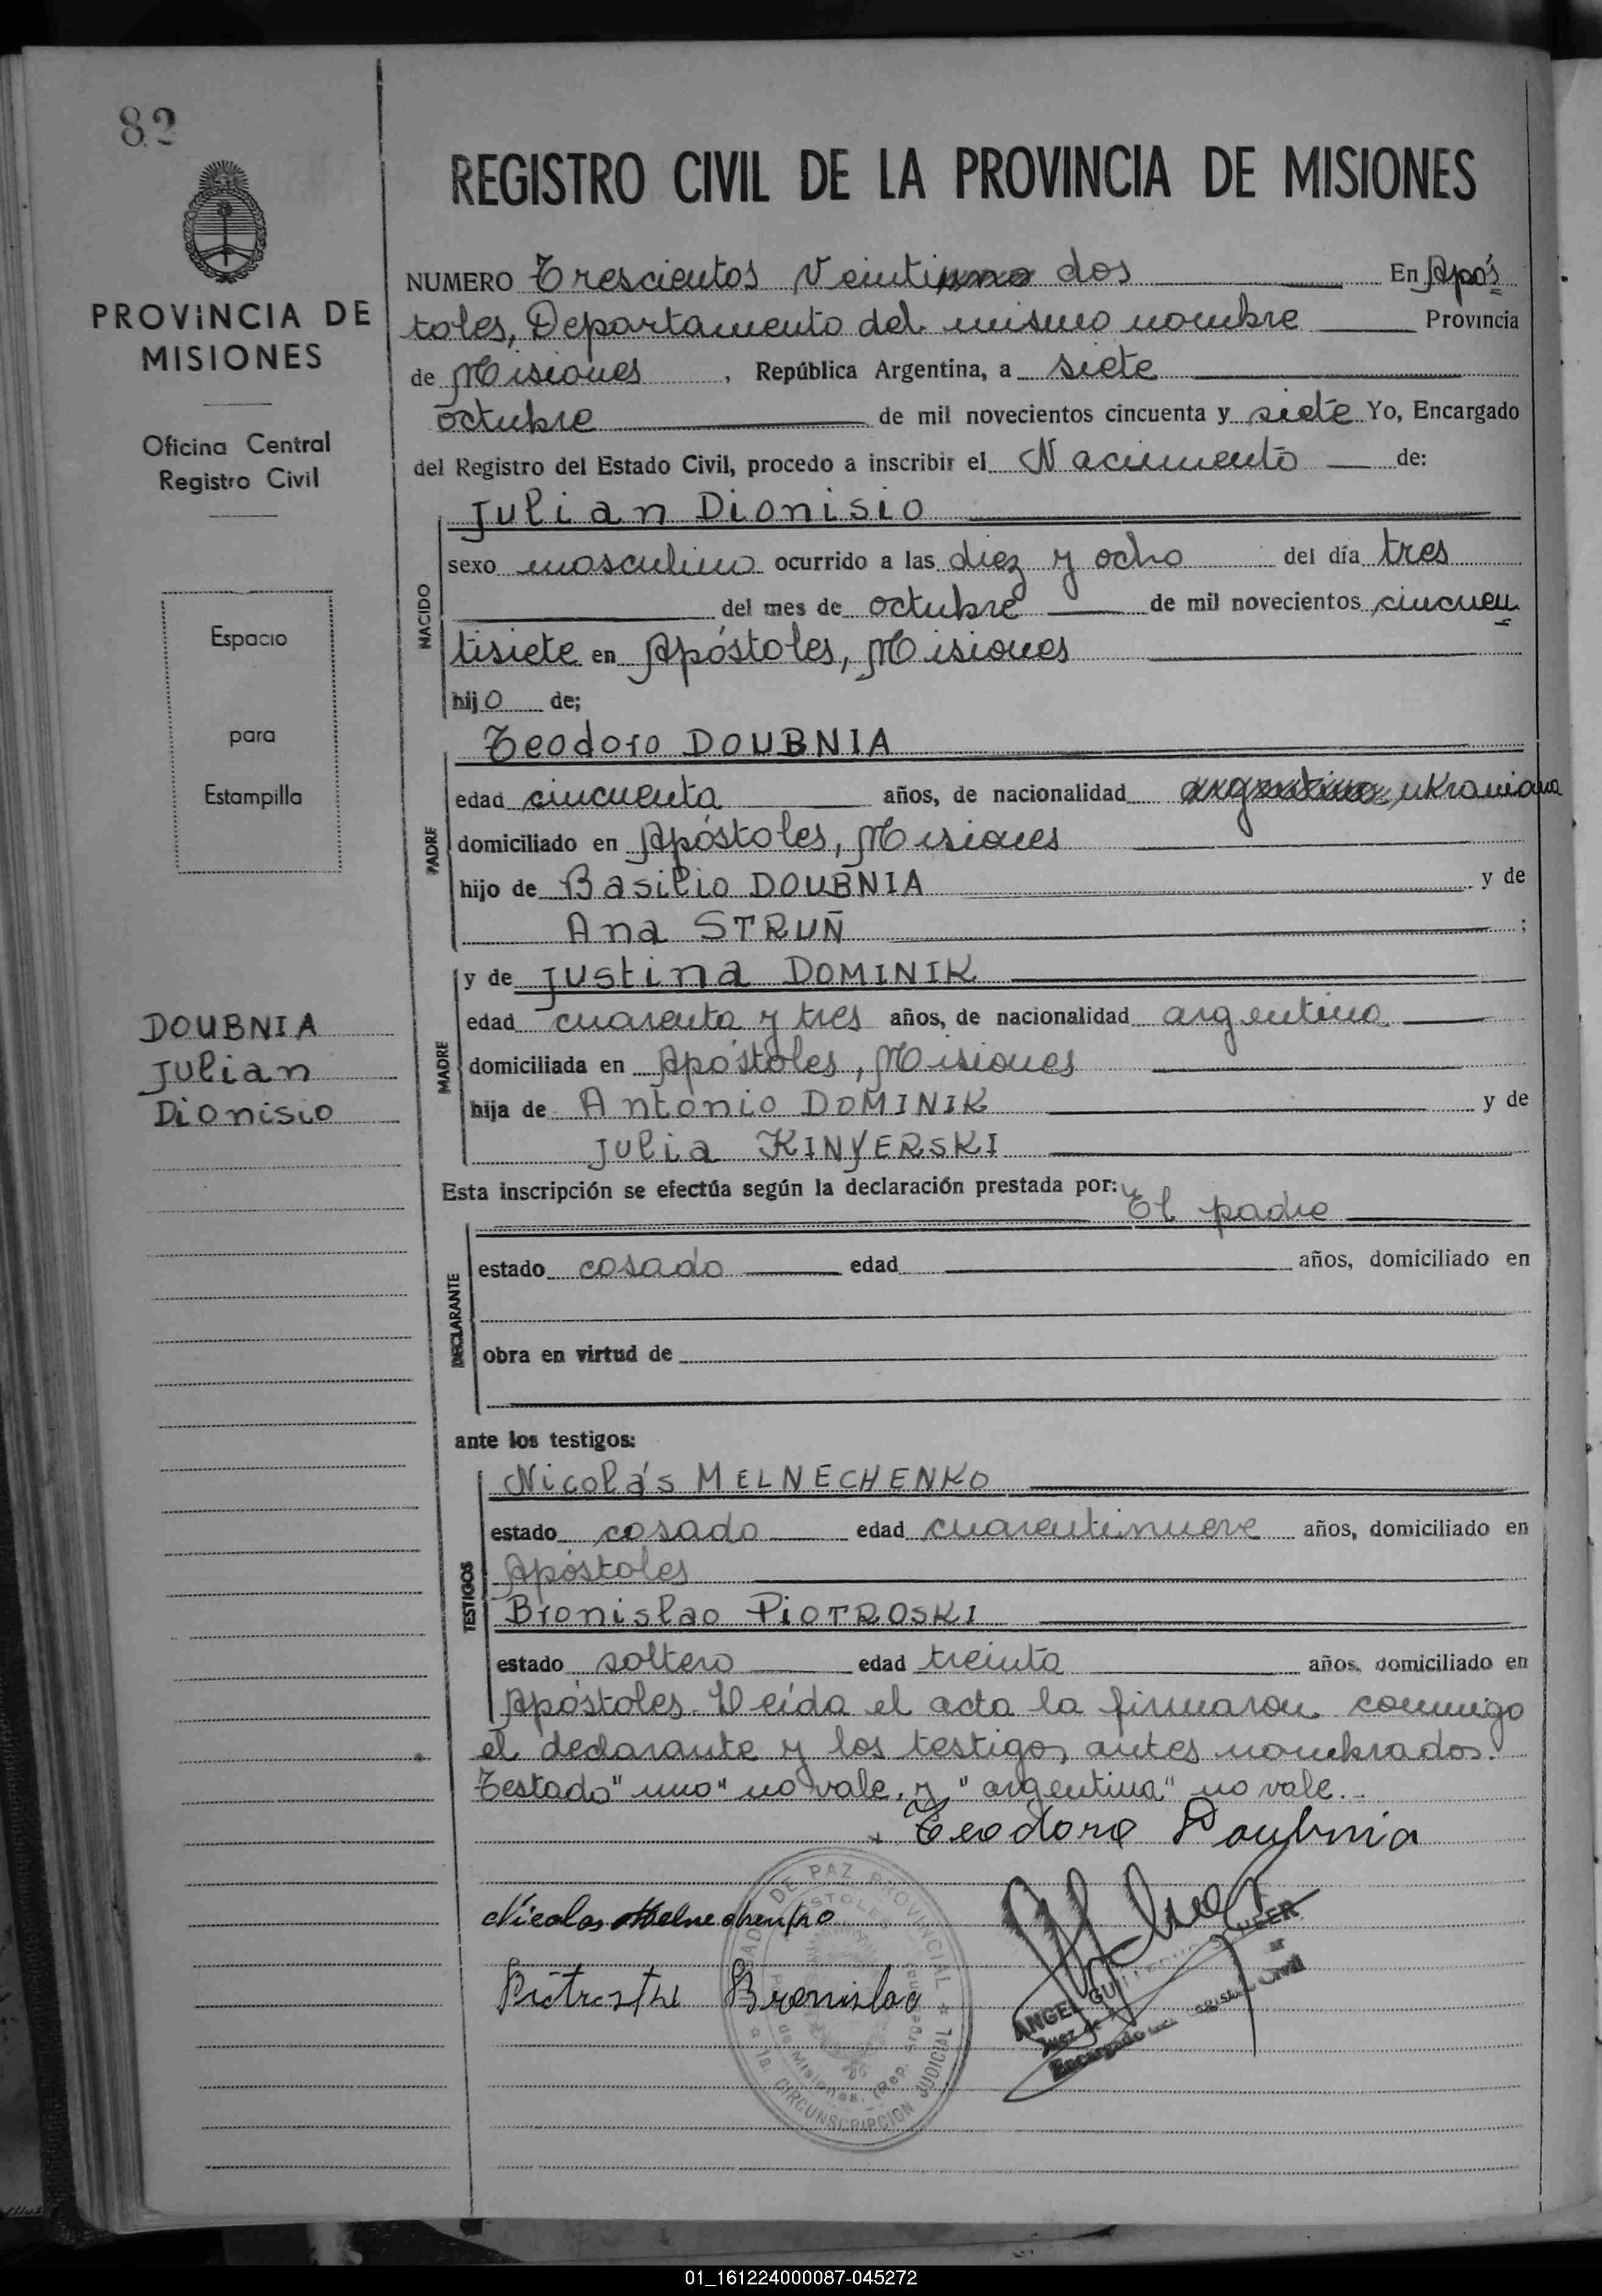 82
PROVINCIA DE
MISIONES
Oficina Central
Registro Civil
Espacio
para
Estampilla
DOUBNIA
Julian
Dionisio
REGISTRO CIVIL DE LA PROVINCIA DE MISIONES
NUMERO Trescientos Veintiuno dos En Após
toles, Departamento del mismo nombre Provincia
de Misiones, República Argentina, a siete
octubre de mil novecientos cincuenta y siete Yo, Encargado
del Registro del Estado Civil, procedo a inscribir el Nacimiento de:
Julian Dionisio
NACIDO
sexo masculino ocurrido a las diez y ocho del día tres
del mes de octubre de mil novecientos cincuen
tisiete en Apóstoles, Misiones
hijo de;
Teodoro DOUBNIA
PADRE
edad cincuenta años, de nacionalidad argentina, ukraniana
domiciliado en Apóstoles, Misiones
hijo de Basilio DOUBNIA y de
Ana STRUÑ ;
y de Justina DOMINIK
MADRE
edad cuarenta y tres años, de nacionalidad argentina
domiciliada en Apóstoles, Misiones
hija de Antonio DOMINIK y de
Julia KINYERSKI
Esta inscripción se efectúa según la declaración prestada por:
El padre
DECLARANTE
estado casado edad años, domiciliado en
obra en virtud de
ante los testigos:
Nicolás MELNECHENKO
TESTIGOS
estado casado edad cuarentinueve años, domiciliado en
Apóstoles
Bronislao PIOTROSKI
estado soltero edad treinta años, domiciliado en
Apóstoles. Leída el acta la firmaron conmigo
el declarante y los testigos antes nombrados.
Testado "uno" no vale, y "argentina" no vale.
Teodoro Doubnia
Nicolas Melnechenko
Piotroski Bronislao
JUZGADO DE PAZ PROVINCIAL
1a. CIRCUNSCRIPCION JUDICIAL
de Misiones. (Rep. Argentina)
ANGEL
Juez de
Encargado Civil
01_161224000087-045272